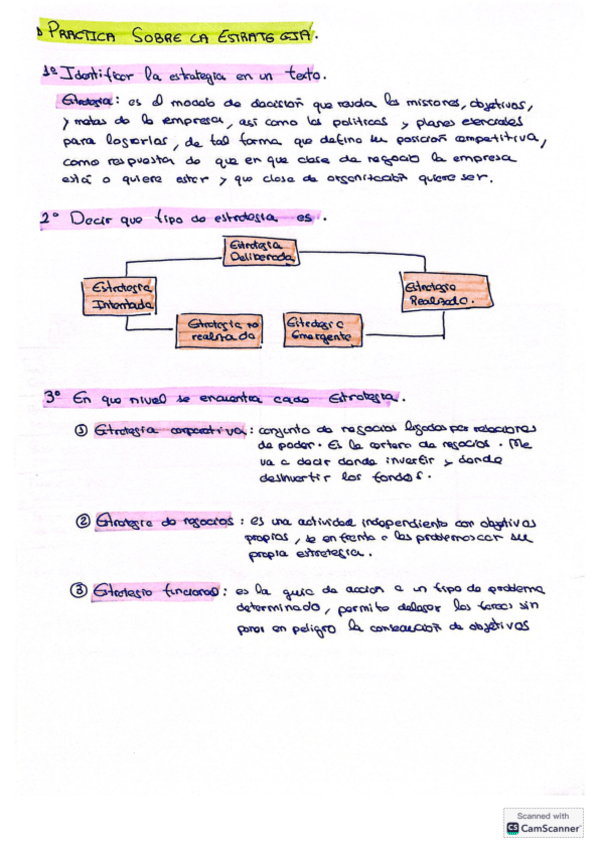 PRACTICA SOBRE LA ESTRATEGIA.
1º Identificar la estrategia en un texto.
Estrategia: es el modelo de decisión que revela las misiones, objetivos,
y metas de la empresa, así como las políticas y planes esenciales
para lograrlas, de tal forma que defina su posición competitiva,
como respuesta de que en que clase de negocio la empresa
está o quiere estar y que clase de organización quiere ser.
2º Decir que tipo de estrategia es.
Estrategia
Deliberada
Estrategia
Intentada
Estrategia
Realizada.
Estrategia no
realizada
Estrategia
Emergente
3º En que nivel se encuentra cada Estrategia.
① Estrategia corporativa: conjunto de negocios ligados por relaciones
de poder. Es la cartera de negocios. Me
va a decir donde invertir y donde
desinvertir los fondos.
② Estrategia de negocios: es una actividad independiente con objetivos
propios, se enfrenta a los problemas con su
propia estrategia.
③ Estrategia funcional: es la guía de acción a un tipo de problema
determinado, permite delegar las tareas sin
poner en peligro la consecución de objetivos
Scanned with
CS CamScanner